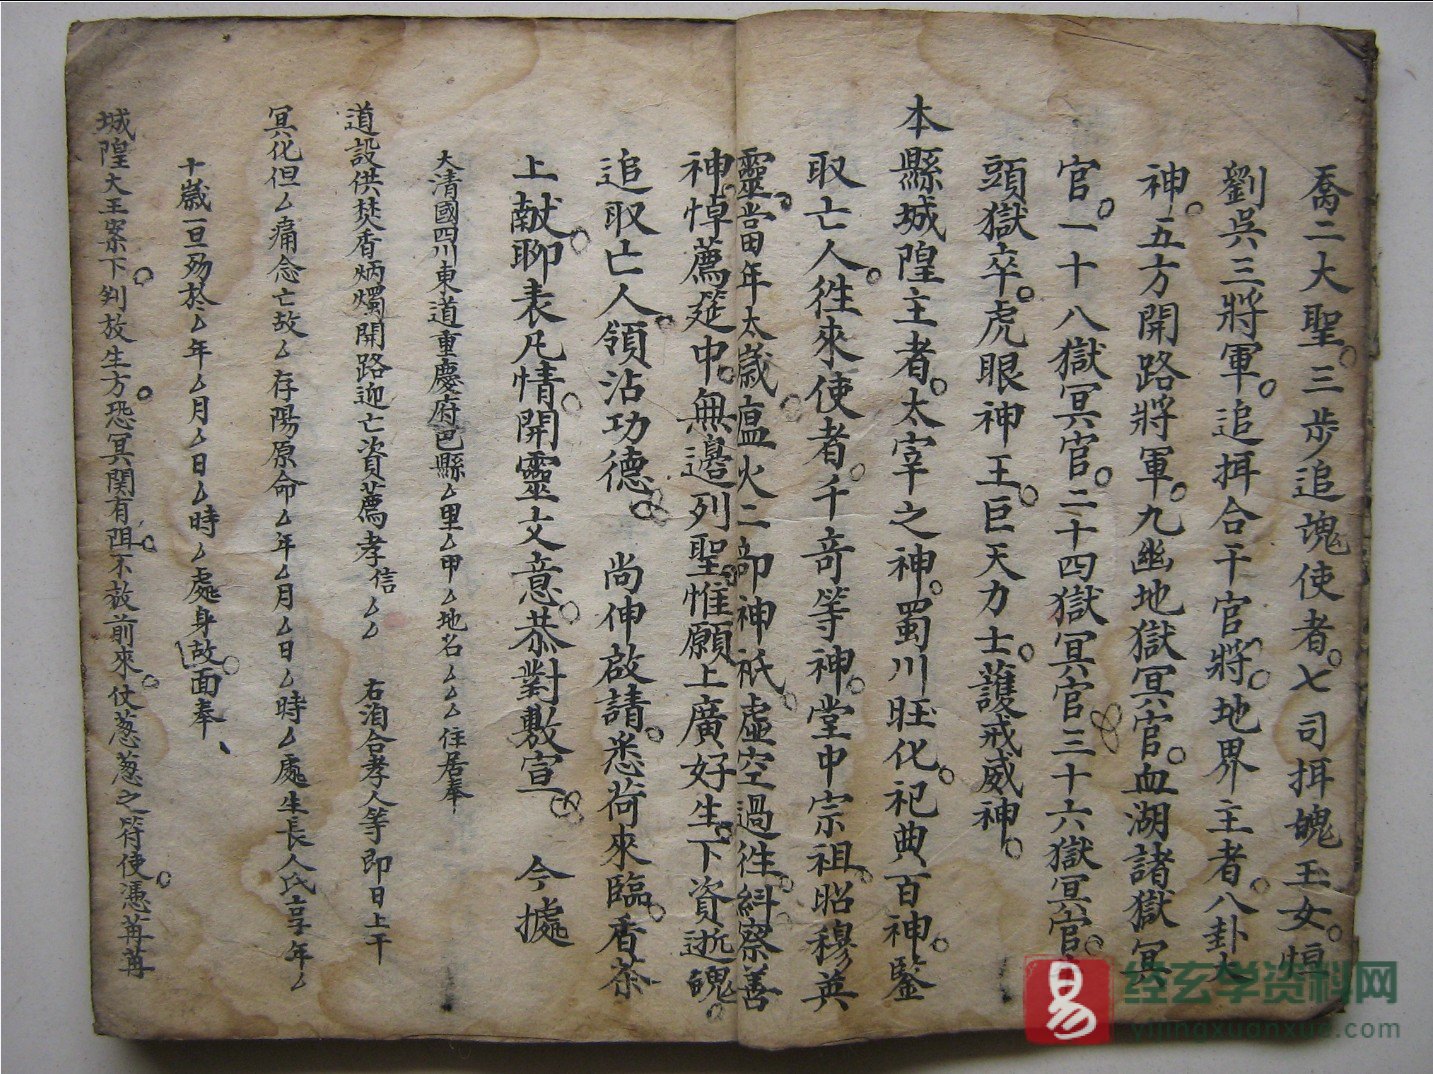 喬二大聖。三步追魂使者。七司揖魄玉女。恒
劉吳三將軍。追揖合干官將。地界主者。八卦大
神。五方開路將軍。九幽地獄冥官。血湖諸獄冥
官。一十八獄冥官。二十四獄冥官三十六獄冥官。
頭獄卒。虎眼神王。巨天力士。護戒威神。
本縣城隍主者。太宰之神。蜀川旺化。祀典百神。鑒
取亡人。往來使者。千奇等神。堂中宗祖。昭穆英
靈。當年太歲瘟火二部神祇。虛空過往。糾察善
神。悼薦筵中。無邊列聖。惟願上廣好生。下資逝魄。
追取亡人。領沾功德。 尚伸啟請。悉荷來臨。香茶
上献。聊表凡情。開靈文意。恭對敷宣。 今據
大清國四川東道重慶府巴縣厶里厶甲厶地名厶厶厶住居奉
道設供焚香炳燭開路迎亡資薦孝信厶厶 右洎合孝人等即日上干
冥化但厶痛念亡故厶存陽原命厶年厶月厶日厶時厶處生長人氏享年厶
十歲一旦殁於厶年厶月厶日厶時厶處身故。面奉、
城隍大王案下。判放生方。恐冥関有阻。不放前來。仗葱葱之符使。憑苒苒
经玄学资料网
yijingxuanxue.com
易